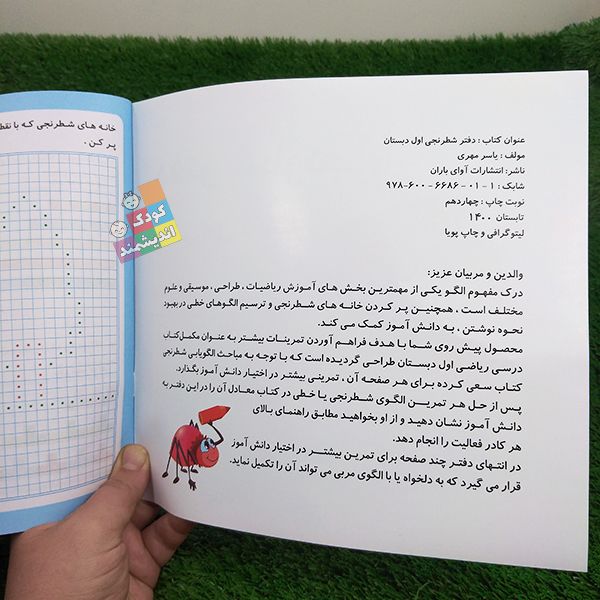 عنوان کتاب : دفتر شطرنجی اول دبستان
مولف : یاسر مهری
ناشر: انتشارات آوای باران
شابک : ۱ - ۰۱ - ۶۶۸۶ - ۶۰۰ - ۹۷۸
نوبت چاپ : چهاردهم
تابستان ۱۴۰۰
لیتوگرافی و چاپ پویا
والدین و مربیان عزیز:
درک مفهوم الگو یکی از مهمترین بخش های آموزش ریاضیات ، طراحی ، موسیقی و علوم
مختلف است ، همچنین پر کردن خانه های شطرنجی و ترسیم الگوهای خطی در بهبود
نحوه نوشتن ، به دانش آموز کمک می کند.
محصول پیش روی شما با هدف فراهم آوردن تمرینات بیشتر به عنوان مکمل کتاب
درسی ریاضی اول دبستان طراحی گردیده است که با توجه به مباحث الگویابی شطرنجی
کتاب سعی کرده برای هر صفحه آن ، تمرینی بیشتر در اختیار دانش آموز بگذارد.
پس از حل هر تمرین الگوی شطرنجی یا خطی در کتاب معادل آن را در این دفتر به
دانش آموز نشان دهید و از او بخواهید مطابق راهنمای بالای
هر کادر فعالیت را انجام دهد.
در انتهای دفتر چند صفحه برای تمرین بیشتر در اختیار دانش آموز
قرار می گیرد که به دلخواه یا با الگوی مربی می تواند آن را تکمیل نماید.
خانه های شطرنجی که با نقط
پر کن .
کودک
اندیشمند